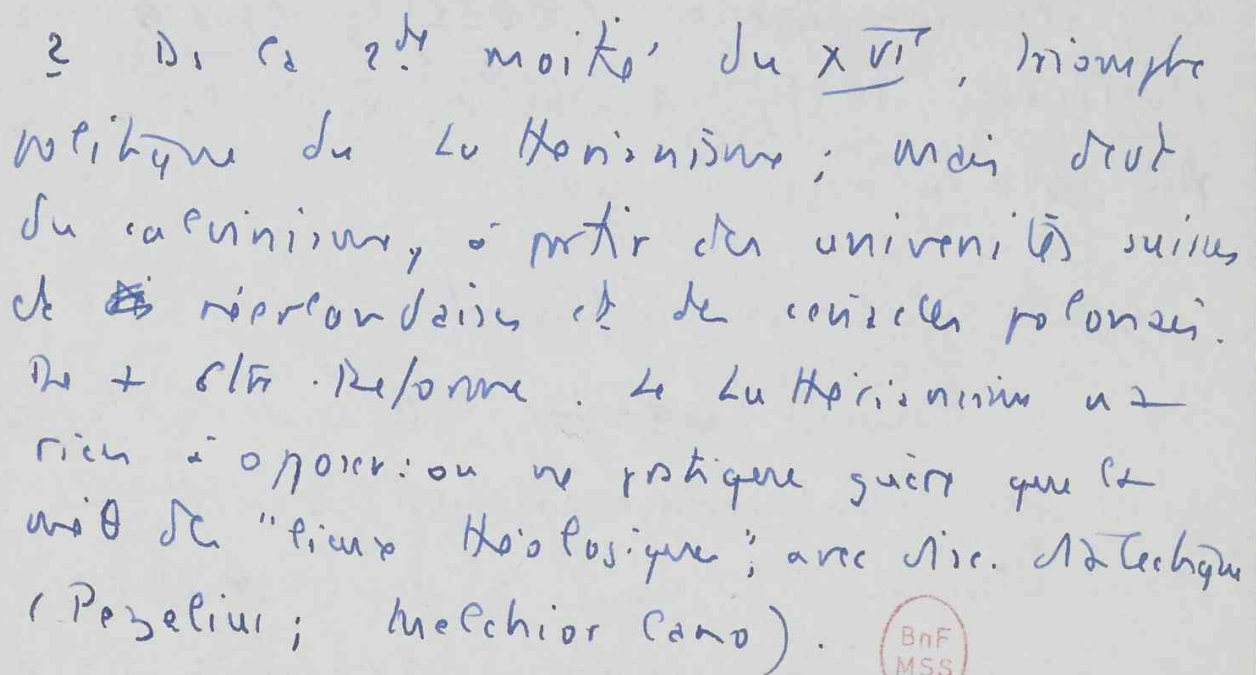 2 Ds la 2de moitié du XVIe, triomphe
politique du Luthérianisme ; mais devt
du calvinisme, à partir des universités suisses
et néerlandaises et de cénacles polonais.
De + Réforme. Le Luthérianisme n'a
rien à opposer : on ne pratique guère que la
méθ de "lieux théologiques" ; avec disc. dialectique
(Pezelius ; Melchior Cano).
BnF
MSS